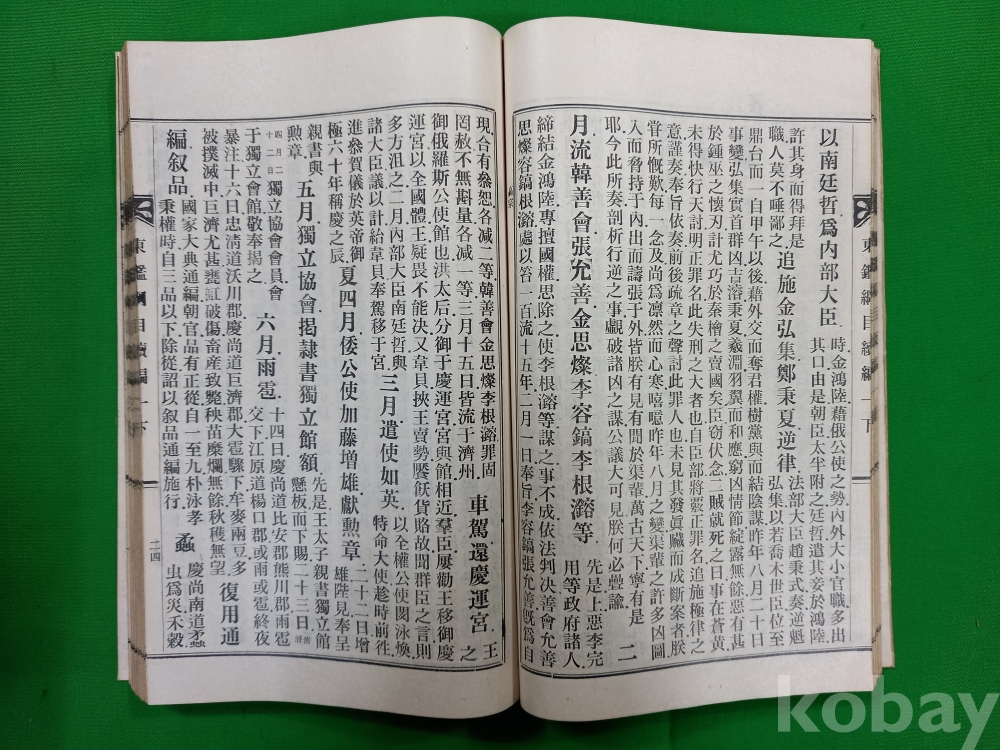 以南廷哲爲內部大臣
時金鴻陸藉俄公使之勢內外大小官職多出
其口由是朝臣太半附之廷哲遣其妾於鴻陸
許其身而得拜是
職人莫不唾鄙之
追施金弘集鄭秉夏逆律
法部大臣趙秉式奏逆魁
弘集以若喬木世臣位至
鼎台而一自甲午以後藉外交而奪君權樹黨與而結陰謀昨年八月二十日
事變弘集實首群凶吉溶秉夏羲淵羽翼而和應窮凶情節綻露無餘惡有甚
於鍾巫之懷刃計尤巧於秦檜之賣國矣臣窃伏念二賊就死之日事在蒼黃
未得快行天討明正罪名此失刑之大者也自臣部將正罪名追施極律之
意謹奏奉旨依奏前後疏章之聲討此罪人也未見其發眞贓而成斷案者朕
甞所慨歎每一念及尚爲凛然而心寒嘻噫昨年八月之變渠輩之許多凶圖
入而脅持于內出而譸張于外皆朕有見有聞於渠輩萬古天下寧有是
耶今此所奏剖析行逆之事覼破諸凶之謀公議大可見朕何必疊諭
二
月流韓善會張允善金思燦李容鎬李根澔等
先是上惡李完
用等政府諸人
締結金鴻陸專擅國權思除之使李根澔等謀之事不成依法判決善會允善
思燦容鎬根澔處以笞一百流十五年二月一日奉旨李容鎬張允善既爲自
現合有叅恕各减二等韓善會金思燦李根澔罪固
罔赦不無斟量各减一等三月十五日皆流于濟州
車駕還慶運宮
王之
御俄羅斯公使館也洪太后分御于慶運宮宮與館相近羣臣屢勸王移御慶
運宮以全國體王疑畏不能决又韋貝挾王賣勢饜飫貨賂故聞群臣之言則
多方沮之二月內部大臣南廷哲與
諸大臣議以計紿韋貝奉駕移于宮
三月遣使如英
以全權公使閔泳煥
特命大使趁時前徃
進叅賀儀於英帝御
極六十年稱慶之辰
夏四月倭公使加藤增雄獻勳章
二十二日增
雄陛見奉呈
親書與
勳章
五月獨立協會揭隸書獨立館額
先是王太子親書獨立館
懸板而下賜二十三日
四月二
十二日
獨立協會會員會
于獨立會館敬奉揭之
六月雨雹
十四日慶尚道比安郡熊川郡雨雹
交下江原道楊口郡或雨或雹終夜
暴注十六日忠淸道沃川郡慶尚道巨濟郡大雹驟下牟麥兩豆多
被撲滅中巨濟尤甚甕缸破傷畜産致斃秧苗糜爛無餘秋穫無望
復用通
編叙品
國家大典通編朝官品有正從自一至九朴泳孝
秉權時自三品以下除從詔以叙品通編施行
蟊
慶尚南道蟊
虫爲災禾穀
東鑑綱目續編 一下
東鑑綱目續編 一下
二四
kobay